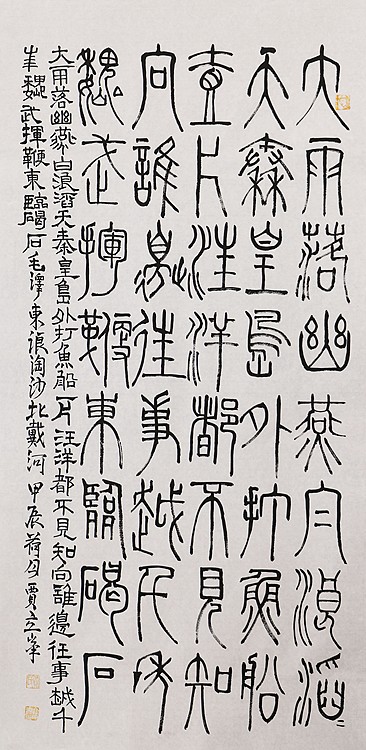 大雨落幽燕白浪滔〻
天秦皇島外打魚船
壹片汪洋都不見知
向誰邊往事越千年
魏武揮鞭東臨碣石
大雨落幽燕白浪滔天秦皇島外打魚船一片汪洋都不見知向誰邊往事越千
年魏武揮鞭東臨碣石毛澤東浪淘沙北戴河甲辰荷月賈立峯